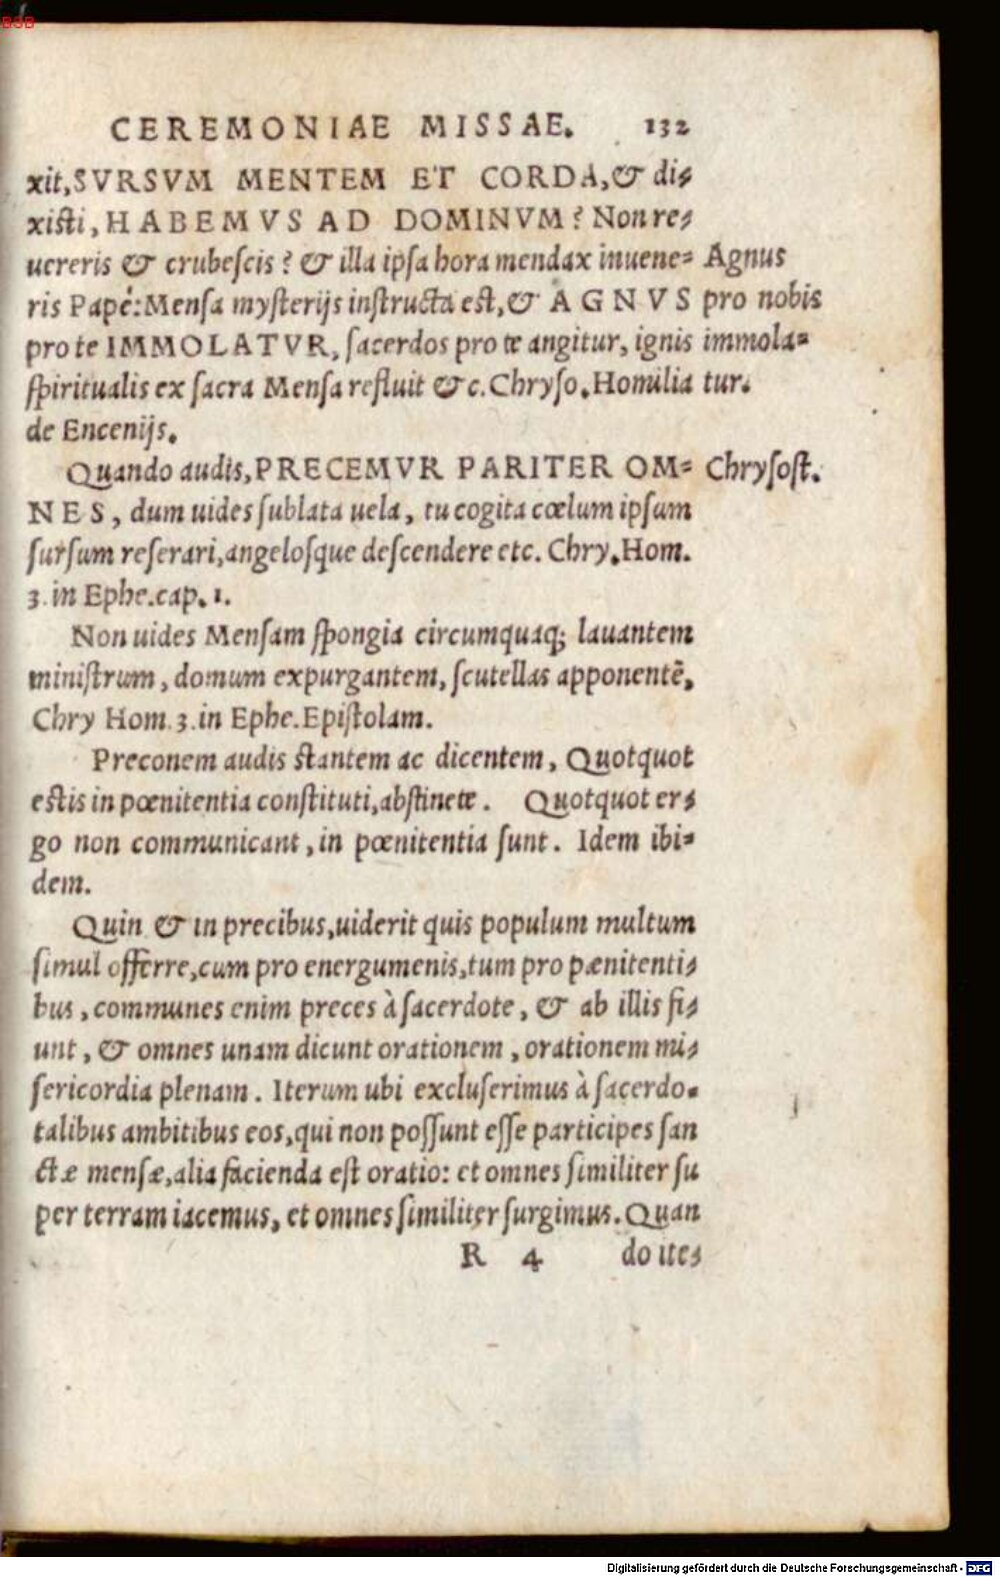 BSB
CEREMONIAE MISSAE. 132
xit, SVRSVM MENTEM ET CORDA, & di-
xisti, HABEMVS AD DOMINVM? Non re-
uereris & erubescis? & illa ipsa hora mendax inuene-
ris Papé: Mensa mysterijs instructa est, & AGNVS
pro te IMMOLATVR, sacerdos pro te angitur, ignis
spiritualis ex sacra Mensa refluit & c. Chryso. Homilia
de Encenijs.
Agnus
pro nobis
immola-
tur.
Quando audis, PRECEMVR PARITER OM-
NES, dum uides sublata uela, tu cogita cœlum ipsum
sursum reserari, angelosque descendere etc. Chry. Hom.
3. in Ephe. cap. 1.
Chrysost.
Non uides Mensam spongia circumquaq; lauantem
ministrum, domum expurgantem, scutellas apponentẽ,
Chry Hom. 3. in Ephe. Epistolam.
Preconem audis stantem ac dicentem, Quotquot
estis in pœnitentia constituti, abstinete. Quotquot er-
go non communicant, in pœnitentia sunt. Idem ibi-
dem.
Quin & in precibus, uiderit quis populum multum
simul offerre, cum pro energumenis, tum pro pænitenti-
bus, communes enim preces à sacerdote, & ab illis fi-
unt, & omnes unam dicunt orationem, orationem mi-
sericordia plenam. Iterum ubi excluserimus à sacerdo-
talibus ambitibus eos, qui non possunt esse participes san
ctæ mensæ, alia facienda est oratio: et omnes similiter su
per terram iacemus, et omnes similiter surgimus. Quan
R 4 do ite-
Digitalisierung gefördert durch die Deutsche Forschungsgemeinschaft - DFG